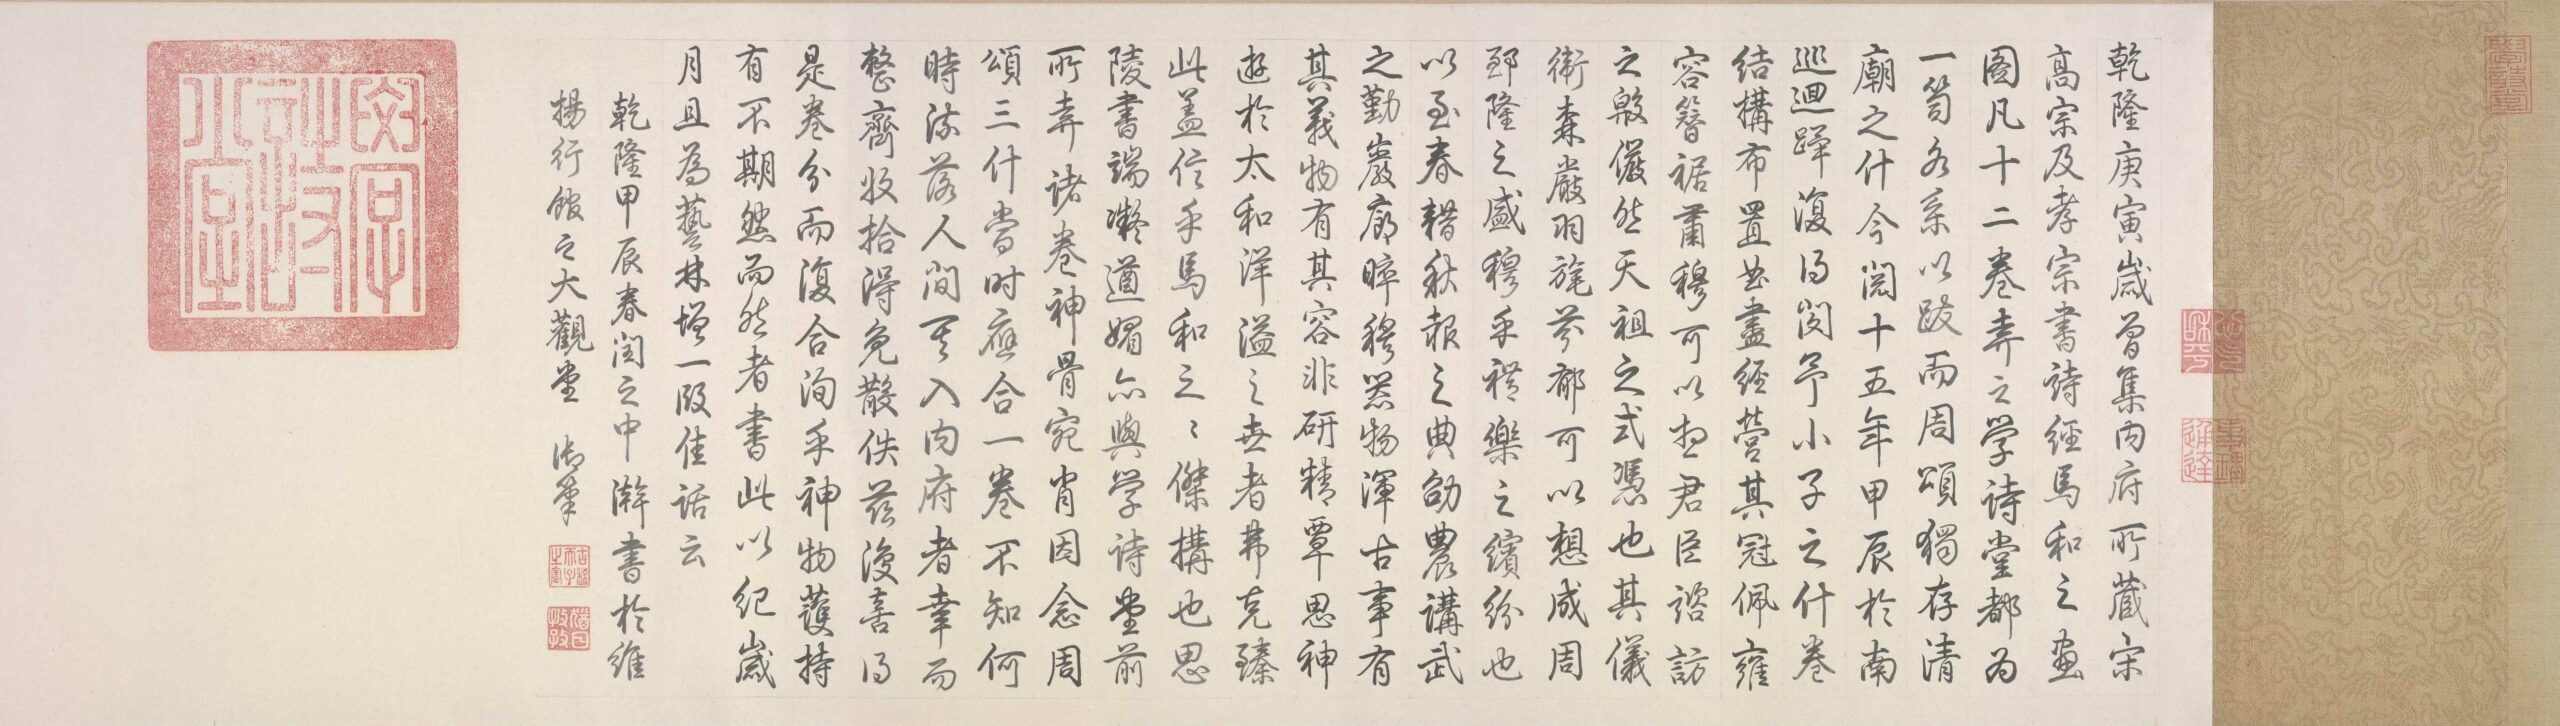 乾隆庚寅歲曾集內府所藏宋
高宗及孝宗書詩經馬和之畫
圖凡十二卷弆之学诗堂都为
一笥各系以跋而周頌獨存清
廟之什今閱十五年甲辰於南
巡迴蹕復得閔予小子之什卷
結構布置曲盡經營其冠佩雍
容簪裾肅穆可以想君臣諮訪
之殷儼然天祖之式憑也其儀
衛森嚴羽旄芬郁可以想成周
郅隆之盛穆乎禮樂之繽紛也
以至春耤秋報之典劭農講武
之勤巖廊睟穆器物渾古事有
其義物有其容非研精覃思神
遊於太和洋溢之世者弗克臻
此盖信乎馬和之之傑構也思
陵書端凝遒媚亦與学詩堂前
所弆诸卷神骨宛肖因念周
頌三什當时應合一卷不知何
時流落人间其入內府者幸而
整齊收拾得免散佚茲復喜得
是卷分而復合洵乎神物護持
有不期然而然者書此以紀歲
月且為藝林增一段佳话云
乾隆甲辰春闰之中澣書於維
揚行館之大觀堂 御筆